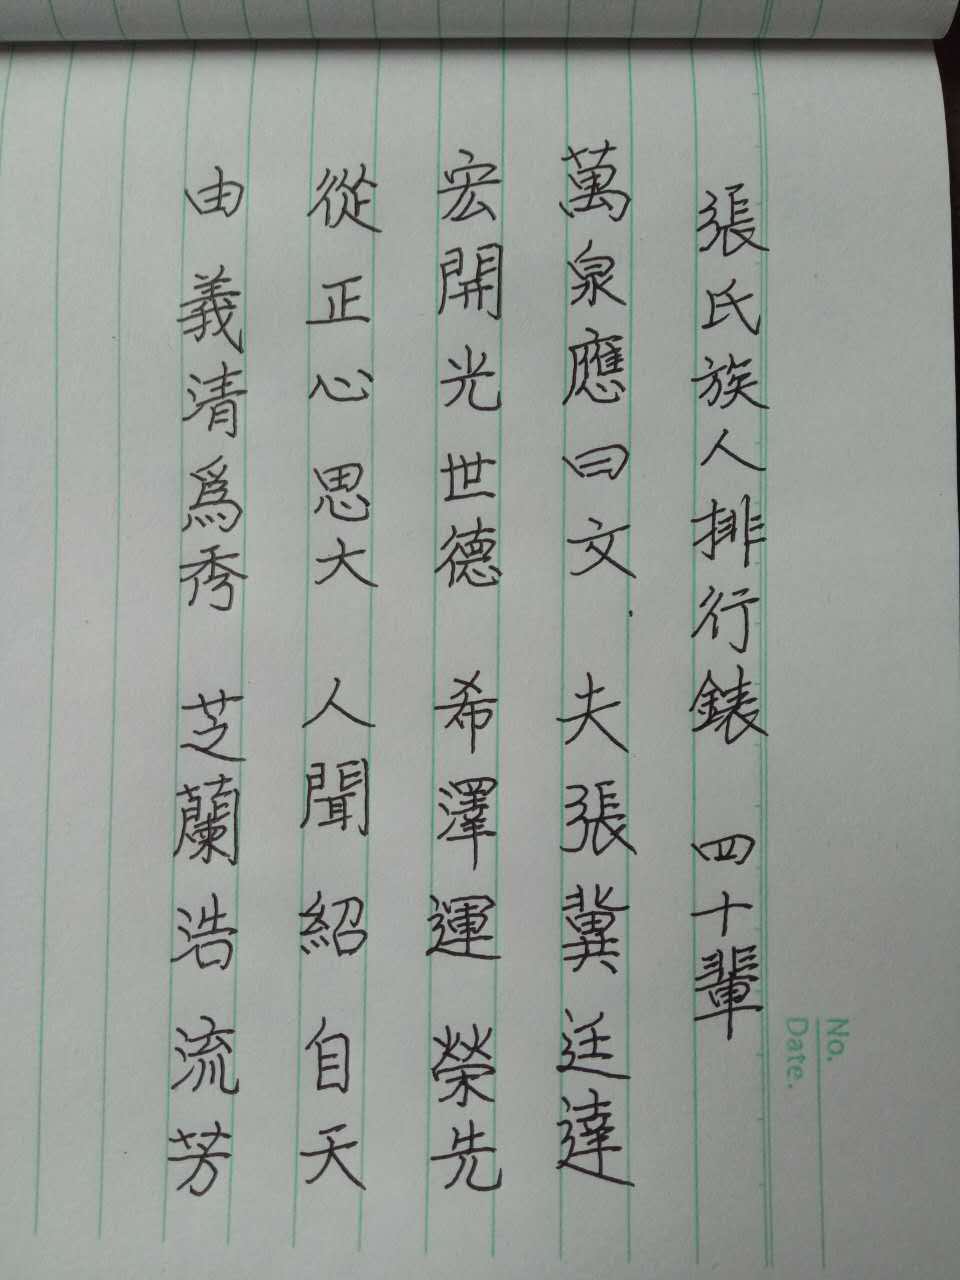 張氏族人排行錶 四十輩
萬泉應曰文 夫張冀廷達
宏開光世德 希澤運榮先
從正心思大 人聞紹自天
由義清爲秀 芝蘭浩流芳
No.
Date.